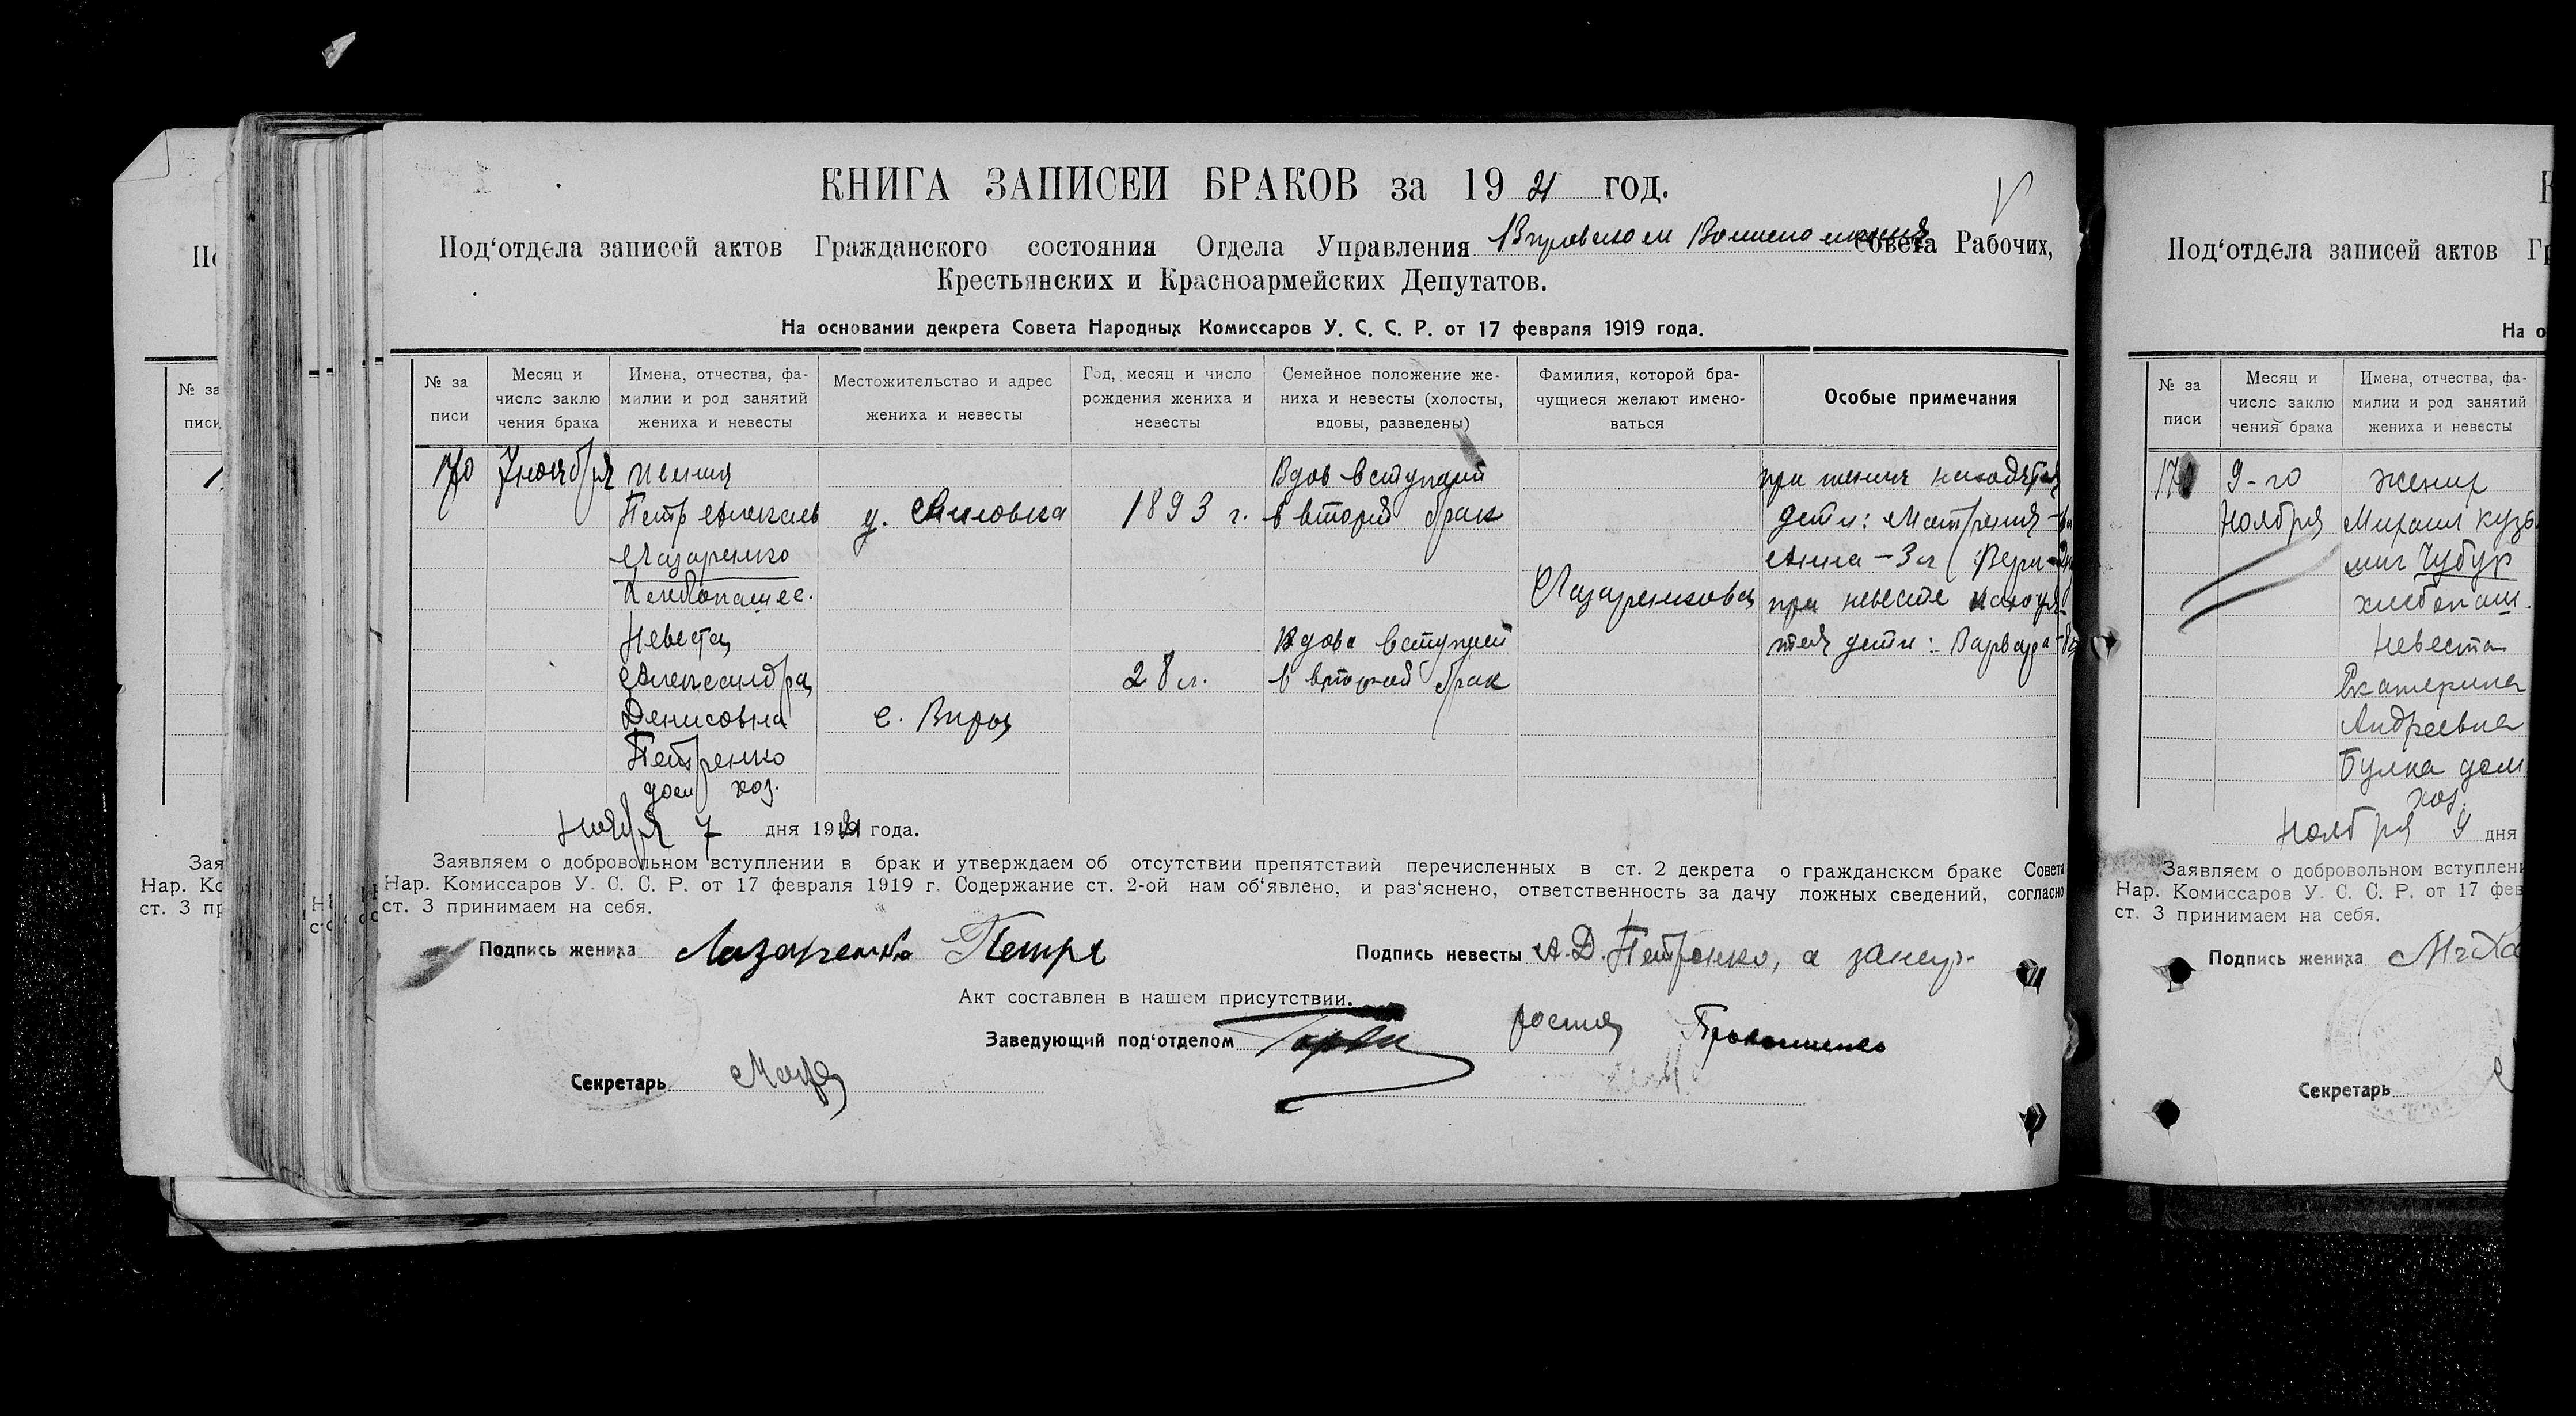 КНИГА ЗАПИСЕЙ БРАКОВ за 1921 год.
Под‘отдела записей актов Гражданского состояния Отдела Управления Вировском Совета Рабочих,
Крестьянских и Красноармейских Депутатов.
На основании декрета Совета Народных Комиссаров У. С. С. Р. от 17 февраля 1919 года.
№ за писи
Месяц и число заклю чения брака
Имена, отчества, фа- милии и род занятий жениха и невесты
Местожительство и адрес жениха и невесты
Год, месяц и число рождения жениха и невесты
Семейное положение же- ниха и невесты (холосты, вдовы, разведены)
Фамилия, которой бра- чущиеся желают имено- ваться
Особые примечания
170 7 ноября жених Вдов вступает при жених находятся
Петр 1893 г. в второй брак дети: Матрения
Лазаренко Анна - 3 л Вера
Хлебопашес. Лазаренкова при невесте находя-
Невеста Вдова вступает тся дети: Варвара
Александра 28 л. в второй брак
Денисовна с. Виры
Петренко
дом хоз.
Ноября 7 дня 1921 года.
Заявляем о добровольном вступлении в брак и утверждаем об отсутствии препятствий перечисленных в ст. 2 декрета о гражданском браке Совета
Нар. Комиссаров У. С. С. Р. от 17 февраля 1919 г. Содержание ст. 2-ой нам об‘явлено, и раз‘яснено, ответственность за дачу ложных сведений, согласно
ст. 3 принимаем на себя.
Подпись жениха Лазаренко Петро
Подпись невесты А. Д. Петренко, а за негр.
Акт составлен в нашем присутствии.
Заведующий под‘отделом
роспис Прокопенко
Секретарь
Под‘отдела записей актов Гр
На о
№ за писи
Месяц и число заклю чения брака
Имена, отчества, фа- милии и род занятий жениха и невесты
9-го жених
Ноября Михаил Кузь
мич Чубур
хлебопаш.
Невеста
Екатерина
Андреевна
Булка дом
хоз.
Ноября 9 дня
Заявляем о добровольном вступлен
Нар. Комиссаров У. С. С. Р. от 17 фев
ст. 3 принимаем на себя.
Подпись жениха
Секретарь